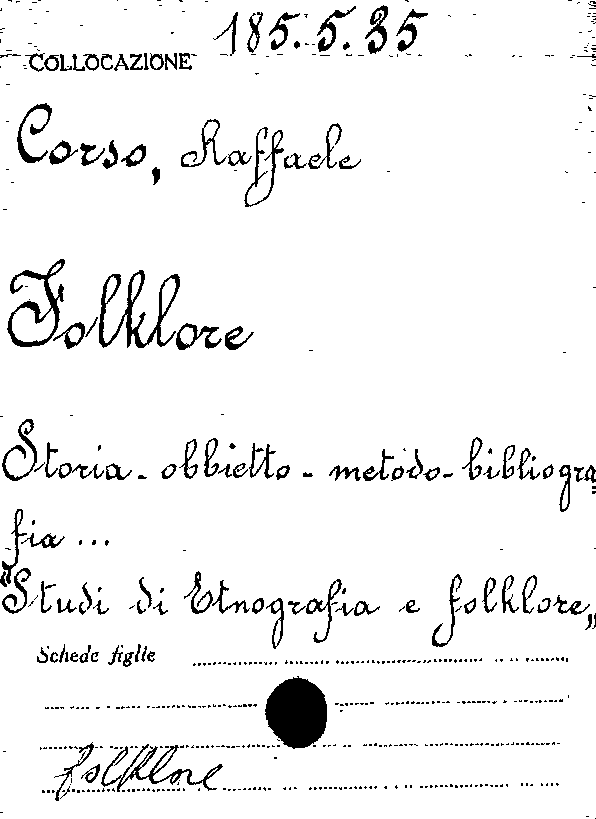 185.5.35
COLLOCAZIONE
Corso, Raffaele
Folklore
Storia - obbietto - metodo - bibliogra=
fia ...
"Studi di Etnografia e folklore„
Schede figlie
folklore